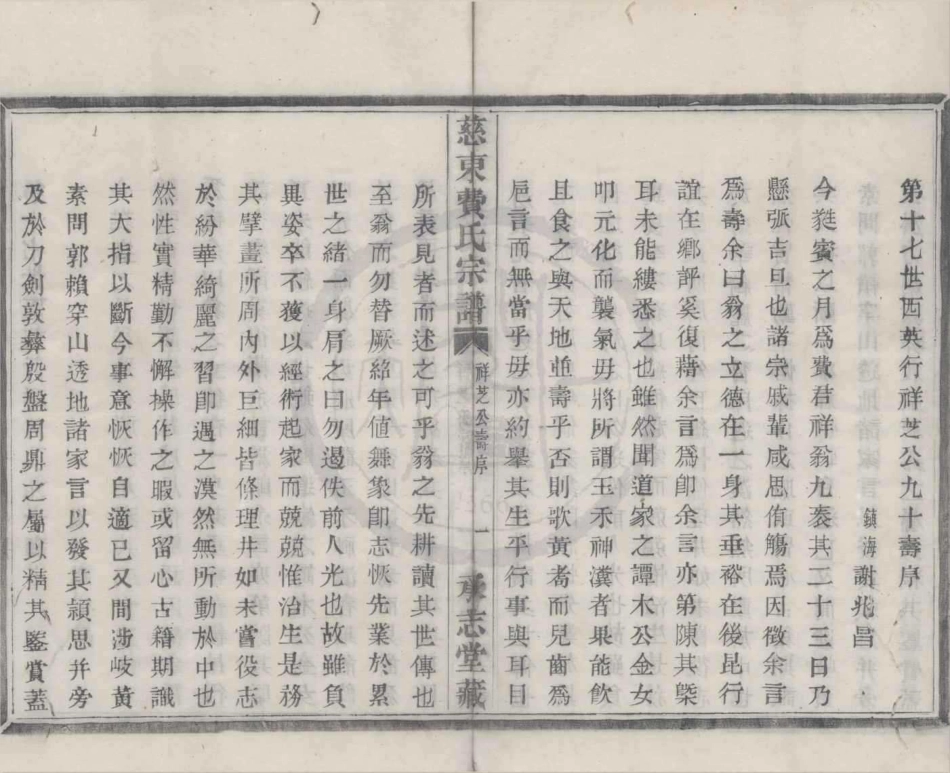 第十七世西英行祥芝公九十壽序
鎮海謝兆昌
今蕤賓之月爲費君祥翁九袠其二十三日乃
懸弧吉旦也諸宗戚輩咸思侑觴焉因徵余言
爲壽余曰翁之立德在一身其垂裕在後昆行
誼在鄉評奚復藉余言爲卽余言亦第陳其槩
耳未能縷悉之也雖然聞道家之譚木公金女
叩元化而襲氣毋將所謂玉禾神瀵者果能飮
且食之與天地並壽乎否則歌黃耉而兒齒爲
巵言而無當乎毋亦約舉其生平行事與耳目
慈東費氏宗譜 祥芝公壽序 一 承志堂藏
所表見者而述之可乎翁之先耕讀其世傳也
至翁而勿替厥紹年値舞象卽志恢先業於累
世之緒一身肩之曰勿遏佚前人光也故雖負
異姿卒不獲以經術起家而兢兢惟治生是務
其擘畫所周內外巨細皆條理井如未嘗役志
於紛華綺麗之習卽遇之漠然無所動於中也
然性實精勤不懈操作之暇或留心古籍期識
其大指以斷今事意恢恢自適已又間涉岐黃
素問郭賴穿山透地諸家言以發其潁思并旁
及於刀劍敦彝殷盤周鼎之屬以精其鑒賞蓋